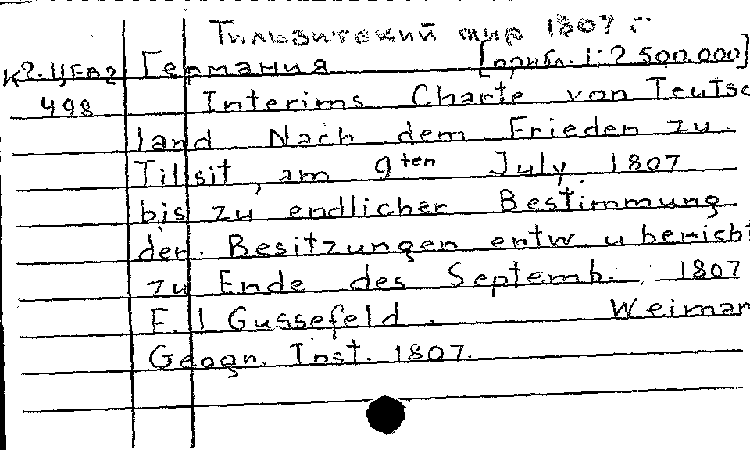 Тильзитский мир 1807 г.
К2.ЦЕв2 Германия [оригл. 1:2 500.000]
498 Interims Charte von Teutsc
land Nach dem Frieden zu
Tillsit, am 9ten July 1807
bis zu endlicher Bestimmung
der Besitzungen entw u bericht
zu Ende des Septemb. 1807
F. I Gussefeld. Weimar
Geogr. Inst. 1807.